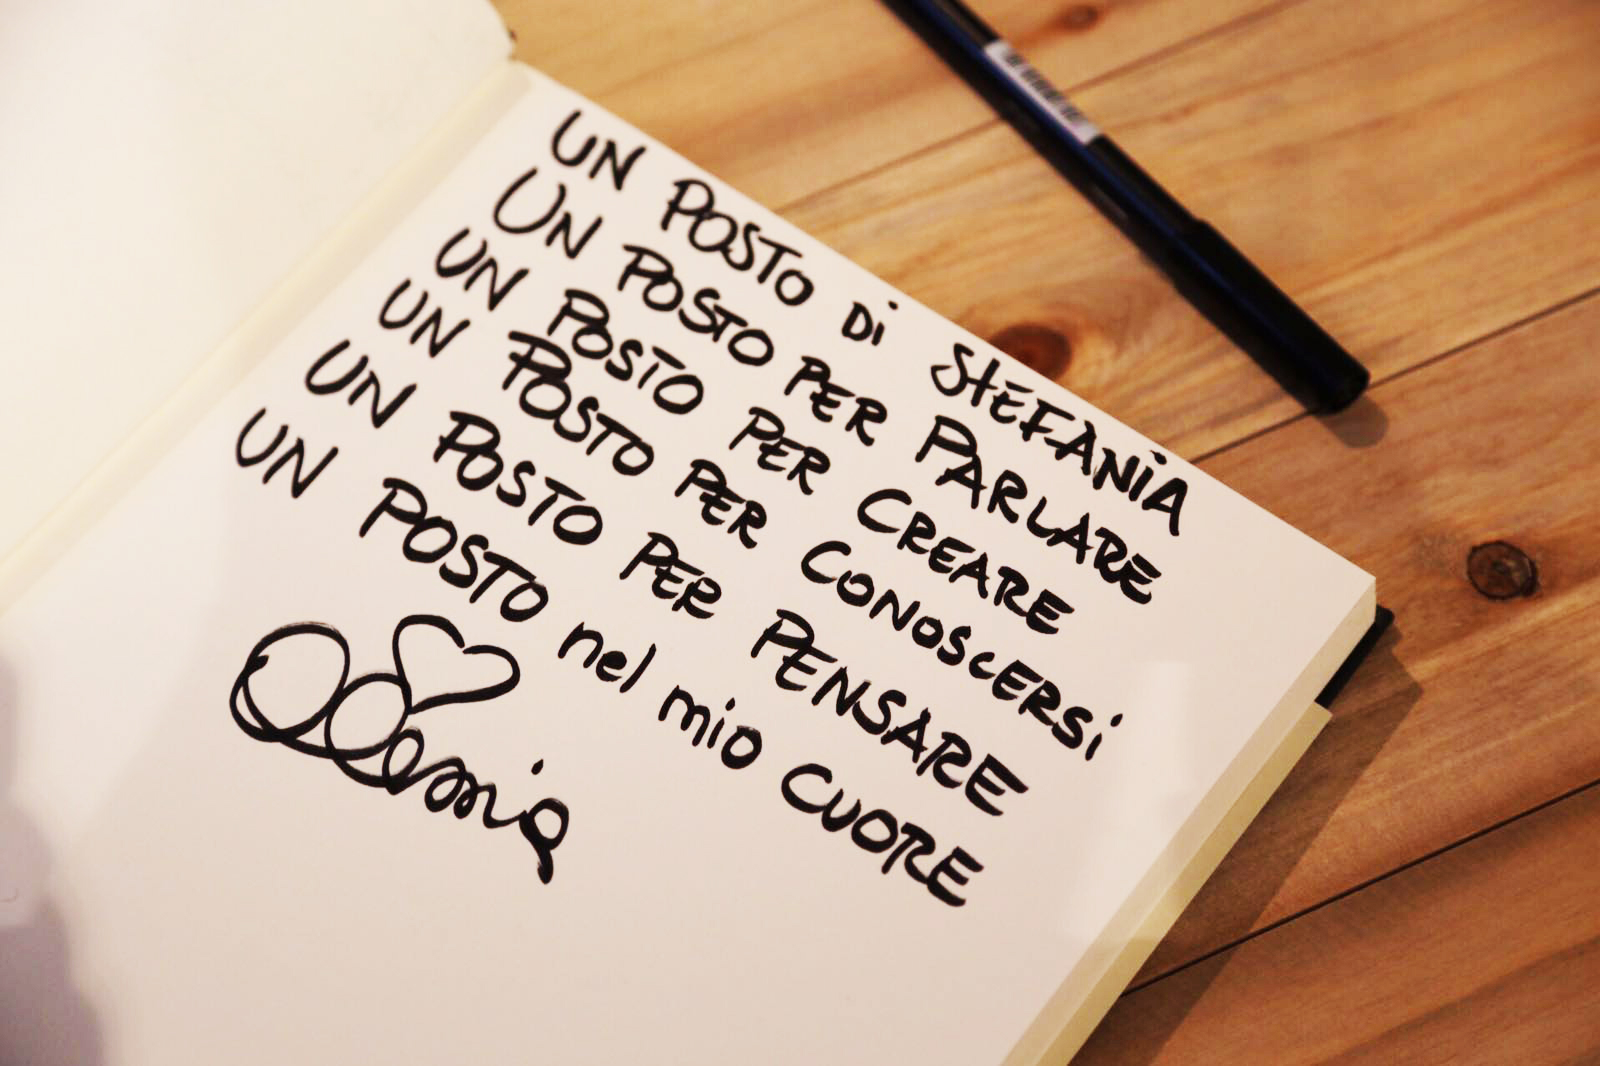 UN POSTO Di StEFANiA
UN POSTO PER PARLARE
UN POSTO PER CREARE
UN POSTO PER CONOSCERSi
UN POSTO PER PENSARE
UN POSTO nel mio CUORE